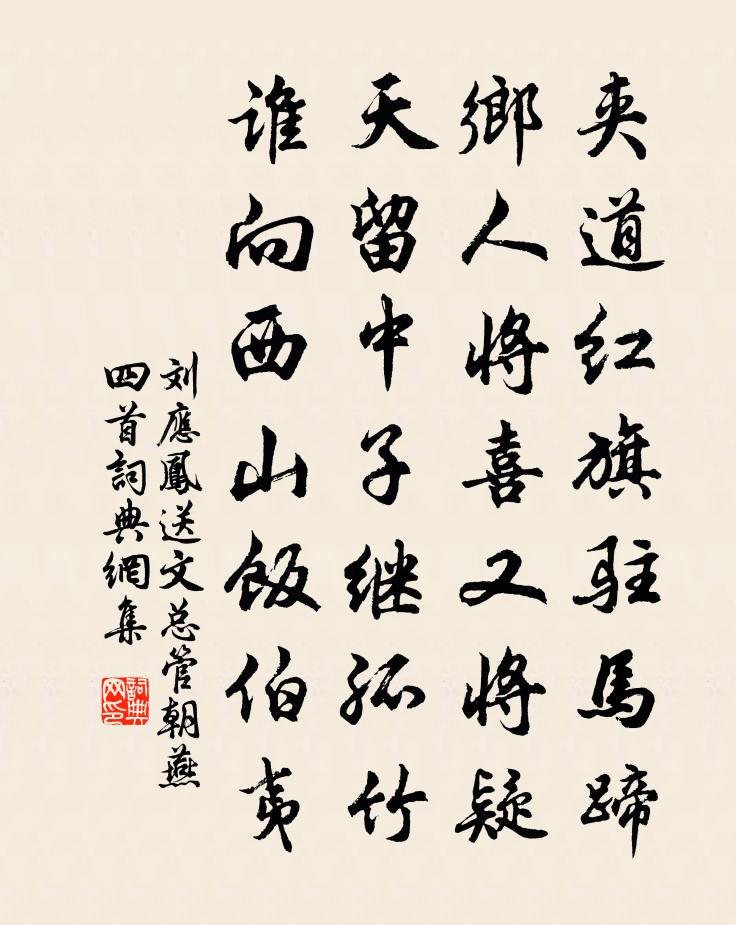 夹道红旗驻馬蹄
鄉人将喜又将疑
天留中子继孤竹
谁向西山饭伯夷
刘應鳳送文总管朝燕
四首詞典網集
詞典
网印